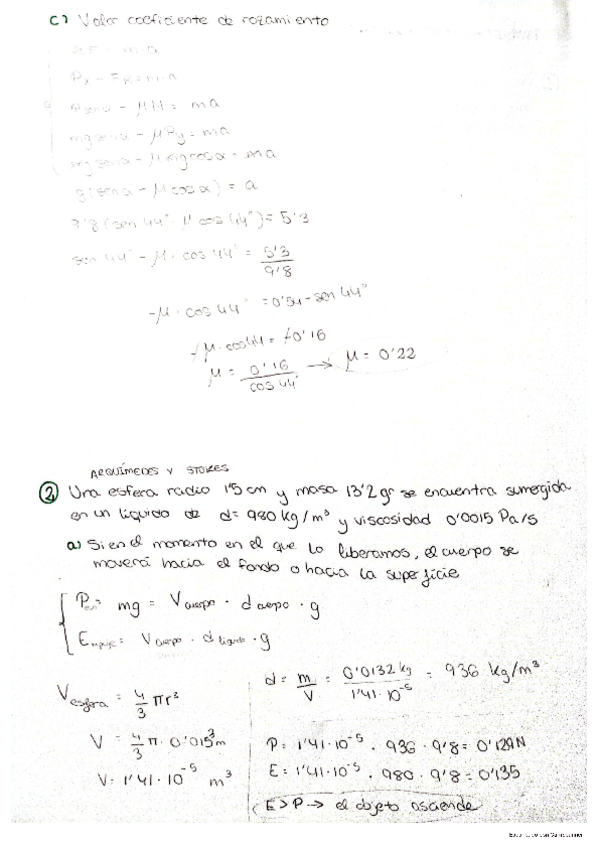 c) Valor coeficiente de rozamiento
ΣF = m·a
Px - FR = m·a
Psenα - μN = ma
mg senα - μPy = ma
mg senα - μmgcosα = ma
g(senα - μcosα) = a
9'8(sen 44° - μ cos 44°) = 5'3
sen 44° - μ · cos 44° = 5'3 / 9'8
-μ · cos 44° = 0'54 - sen 44°
-μ · cos44 = -0'16
μ = 0'16 / cos 44° → μ = 0'22
ARQUÍMEDES Y STOKES
② Una esfera radio 1'5 cm y masa 13'2 gr se encuentra sumergida
en un líquido de d= 980 kg/m³ y viscosidad 0'0015 Pa/s
a) Si en el momento en el que lo liberamos, el cuerpo se
moverá hacia el fondo o hacia la superficie
P = mg = Vcuerpo · dcuerpo · g
Empuje = Vcuerpo · dlíquido · g
Vesfera = 4/3 πr³
V = 4/3 π · 0'015³m
V = 1'41 · 10⁻⁵ m³
d = m/V = 0'0132 kg / 1'41 · 10⁻⁵ = 936 kg/m³
P = 1'41·10⁻⁵ · 936 · 9'8 = 0'129N
E = 1'41·10⁻⁵ · 980 · 9'8 = 0'135
E > P → el objeto asciende